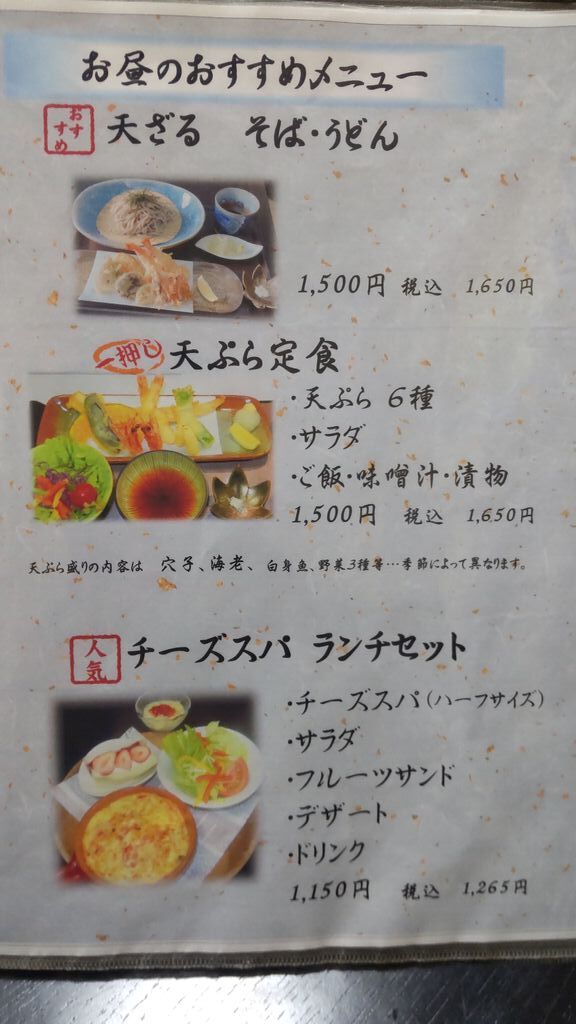 お昼のおすすめメニュー
おすすめ 天ざる そば・うどん
1,500円 税込 1,650円
一押し 天ぷら定食
・天ぷら 6種
・サラダ
・ご飯・味噌汁・漬物
1,500円 税込 1,650円
天ぷら盛りの内容は 穴子、海老、白身魚、野菜3種等…季節によって異なります。
人気 チーズスパ ランチセット
・チーズスパ(ハーフサイズ)
・サラダ
・フルーツサンド
・デザート
・ドリンク
1,150円 税込 1,265円